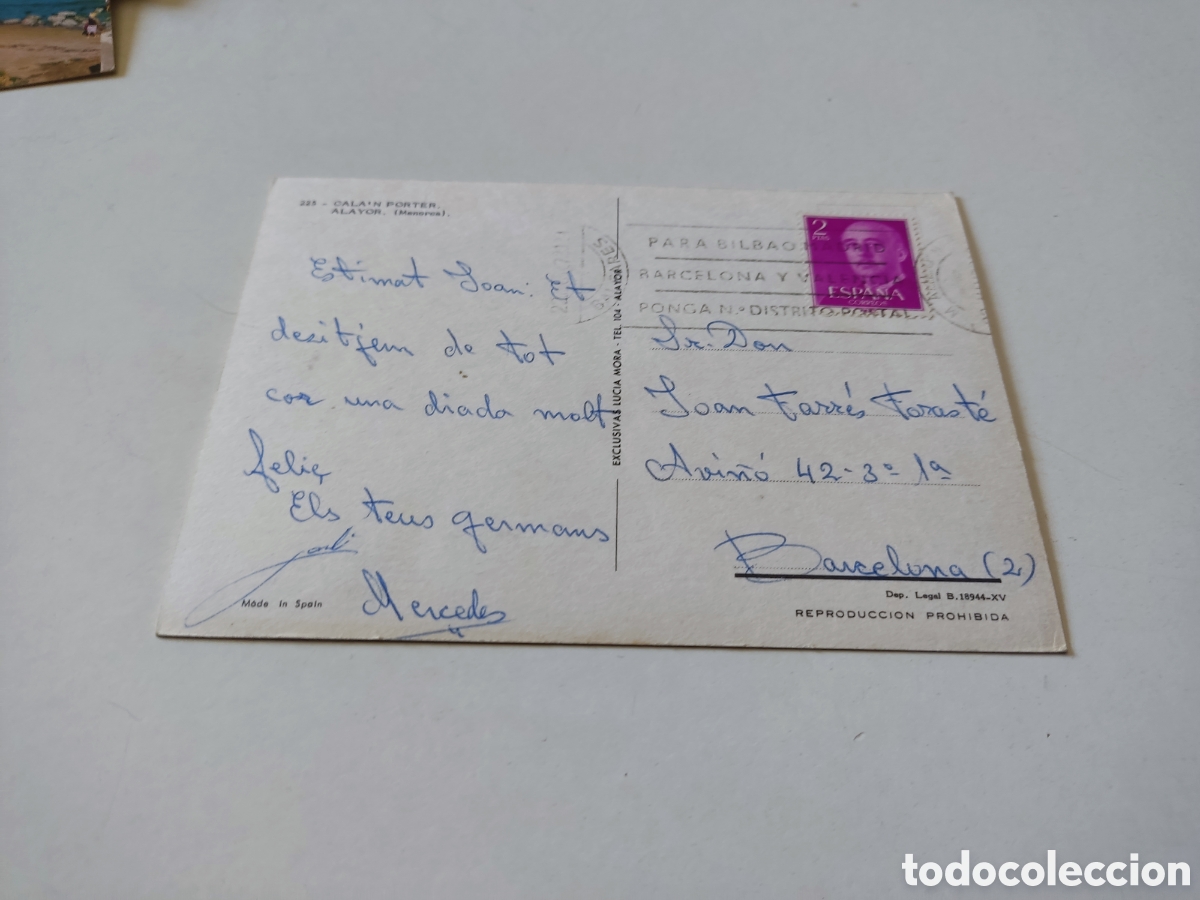 223 - CALA'N PORTER.
ALAYOR. (Menorca).
Estimat Joan: Et
desitjem de tot
cor una diada molt
feliç
Els teus germans
Jordi
Mercedes
Made in Spain
EXCLUSIVAS LUCIA MORA - TEL. 104 - ALAYOR
PARA BILBAO
BARCELONA Y VALENCIA
PONGA N.º DISTRITO POSTAL
2
PTAS
ESPAÑA
CORREOS
Sr. Don
Joan Farrés Forasté
Aviñó 42-3º 1ª
Barcelona (2)
Dep. Legal B.18944-XV
REPRODUCCION PROHIBIDA
todocoleccion